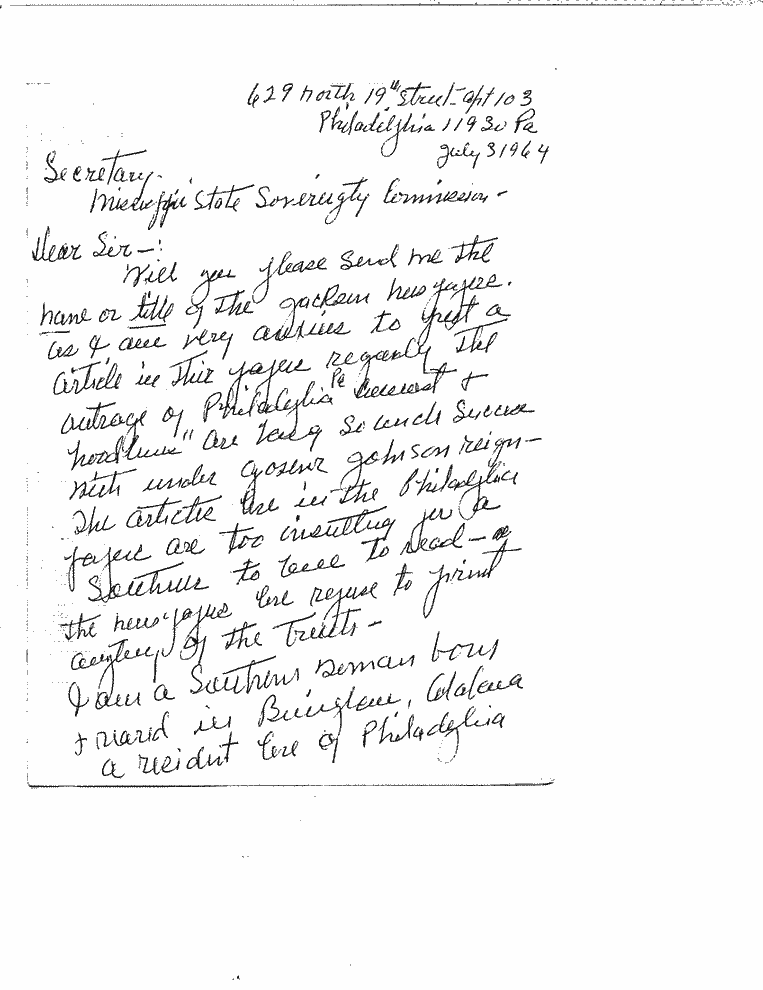 629 North 19th Street - apt 103
Philadelphia 11930 Pa
July 31964
Secretary -
Mississippi State Sovereignty Commission -
Dear Sir - :
Will you please send me the
name or title of the Jackson newspapers.
as I am very anxious to put a
article in this paper regardly the
outrage of Philadelphia Pa
hoodlums" are having so much success
with under Gosenr Johnson reign -
The articles here in the Philadelphia
papers are too insulting for a
Southern to to read - a
the newspapers here refuse to print
anything of the Truth -
I am a Southern woman born
+ reared in Birmgham, Alabama
a resident here of Philadelphia